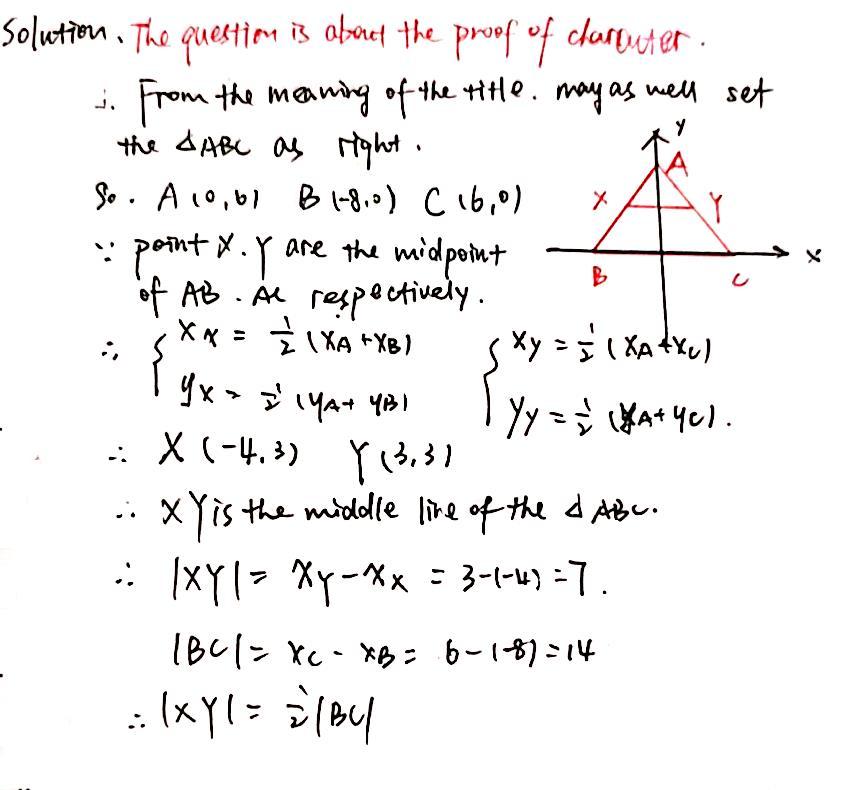 Solution. The question is about the proof of character.
∴ From the meaning of the title. may as well set
the △ABC as right.
So. A(0,6) B(-8,0) C(6,0)
∵ point X. Y are the midpoint
of AB. AC respectively.
y
A
X
Y
x
B
C
∴ { x_X = 1/2 (x_A + x_B) { x_Y = 1/2 (x_A + x_C)
y_X = 1/2 (y_A + y_B) y_Y = 1/2 (y_A + y_C).
∴ X(-4,3) Y(3,3)
∴ XY is the middle line of the △ABC.
∴ |XY| = x_Y - x_X = 3-(-4) = 7.
|BC| = x_C - x_B = 6-(-8) = 14
∴ |XY| = 1/2 |BC|